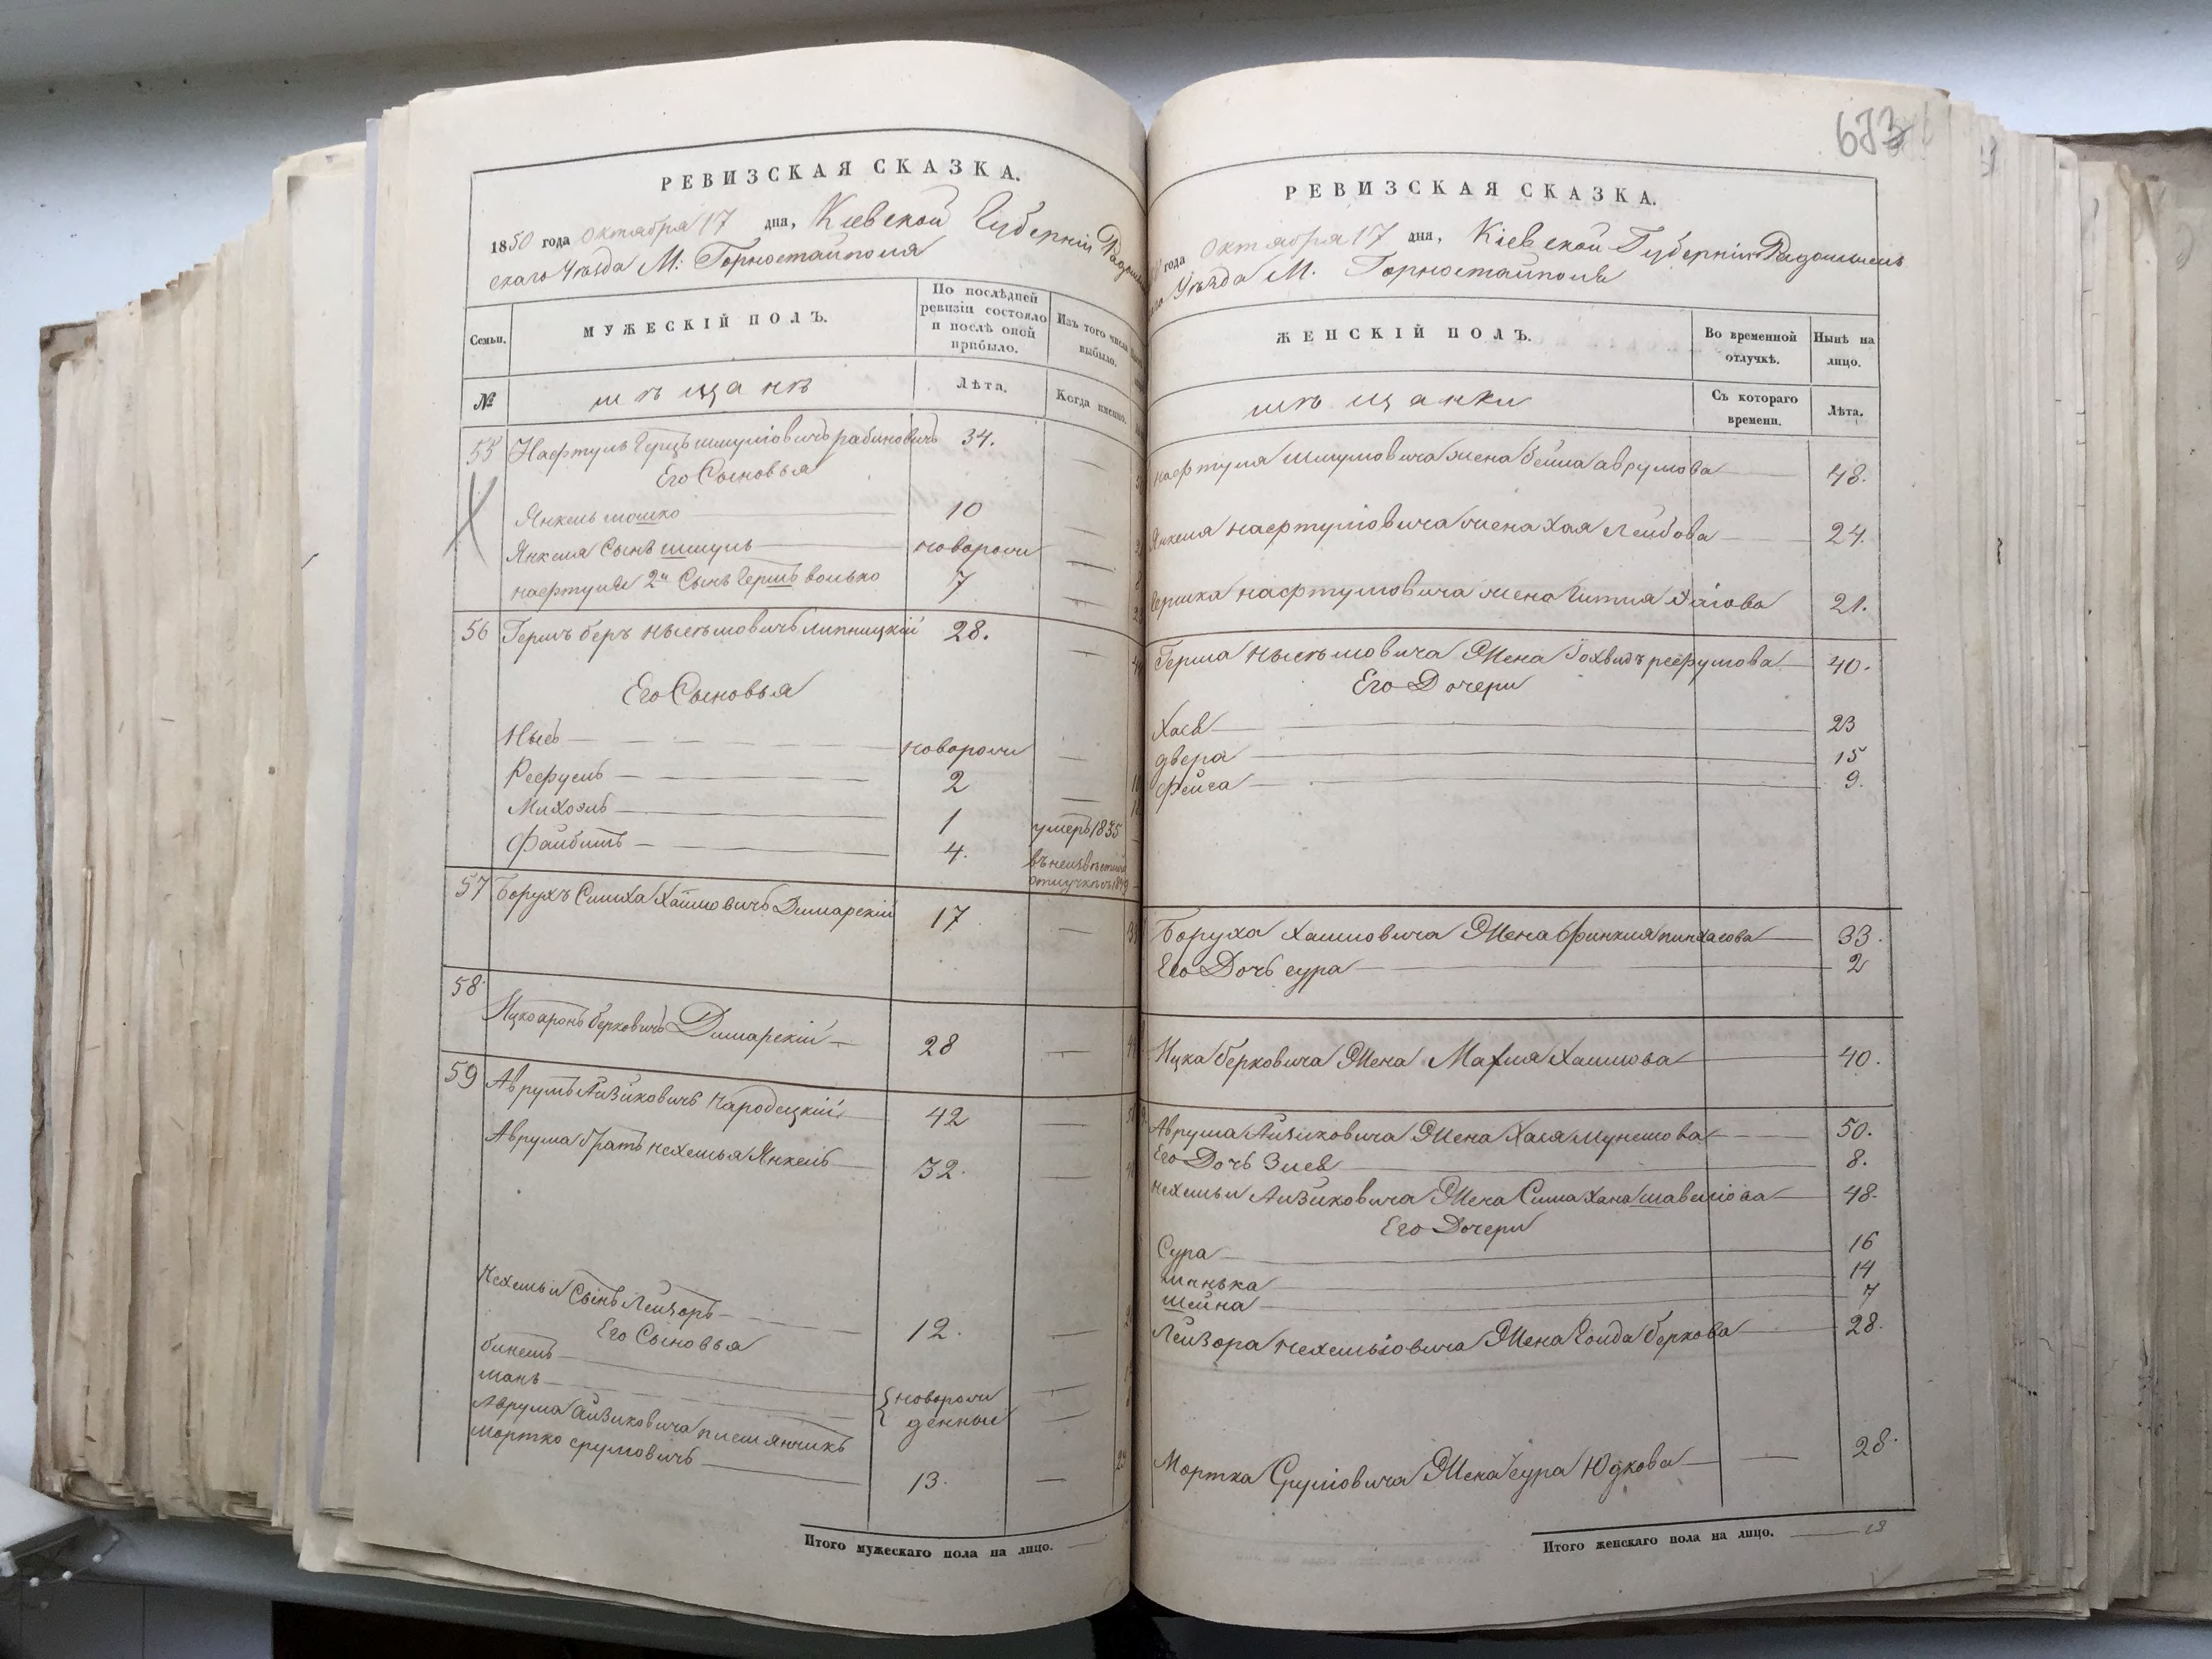 РЕВИЗСКАЯ СКАЗКА.
1850 года Октября 17 дня, Кіевской Губерніи Радомысль
скаго Уѣзда М: Горностайполя
Семьи.
МУЖЕСКІЙ ПОЛЪ.
По послѣдней ревизіи состояло и послѣ оной прибыло.
Изъ того числа выбыло.
№
мѣщане
Лѣта.
Когда именно.
55 Нафтуль Герцъ Шмуліовичъ рабиновичъ 34.
Его Сыновья
Янкель мошко 10
Янкеля Сынъ шмуль новорож
нафтули 2й Сынъ Гершъ волько 7
56 Гершъ беръ Нысельовичъ липницкій 28.
Его Сыновья
Нысь новорож
Рефуель 2
Михоэль 1 умеръ 1835
Файбишъ 4. въ неизвѣстной отлучкѣ съ 1849
57 Борухъ Симха Хаймовичъ Димарскій 17
58 Ицко аронъ берковичъ Димарскій 28
59 Аврумъ Айзиковичъ Народецкій 42
Аврума братъ нехемья Янкель 32.
Нехемьи Сынъ Лейзоръ 12.
Его Сыновья
бинемъ
мань
новорож
денные
Аврума Айзиковича племянникъ
мортко сруловичъ 13.
Итого мужескаго пола на лицо.
673
РЕВИЗСКАЯ СКАЗКА.
года Октября 17 дня, Кіевской Губерніи Радомысль
Уѣзда М. Горностайполя
ЖЕНСКІЙ ПОЛЪ.
Во временной отлучкѣ.
Нынѣ на лицо.
мѣщанки
Съ котораго времени.
Лѣта.
нафтуля Шмуловича жена бейла аврумова 48.
Янкеля нафтуліовича жена Хая Лейбова 24.
Гершка нафтуловича жена Гитля 21.
Герша Жена 40.
Его Дочери
Хася 23
двера 15
фейга 9.
Боруха Хаимовича Жена фрижля пинхасова 33.
Его Дочь сура 2
Ицка берковича Жена Маля Хаимова 40.
Аврума Айзиковича Жена Хая 50.
Его Дочь Злея 8.
нехемьи Айзиковича Жена Сима Хана шавеліова 48.
Его Дочери
Сура 16
14
шейна 7
Лейзора нехеміовича Жена Голда беркова 28.
Мортка Сруліовича Жена сура Юдкова 28.
Итого женскаго пола на лицо. 18